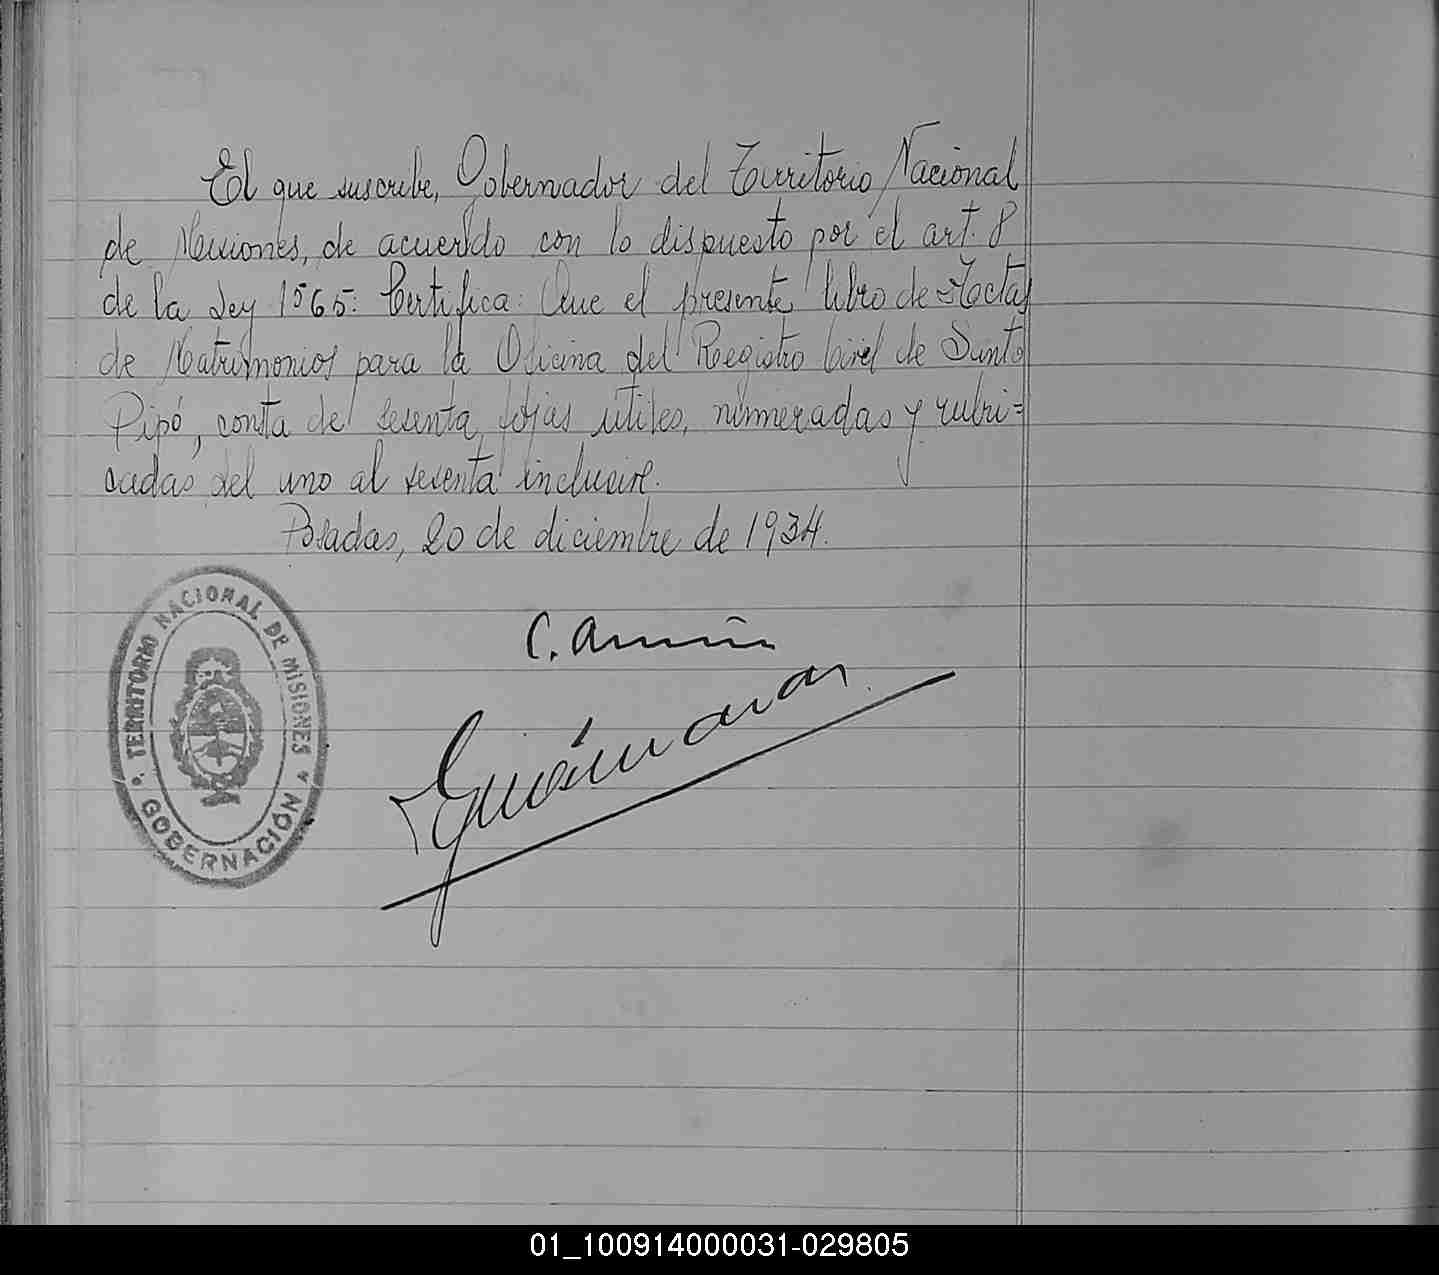 El que suscribe, Gobernador del Territorio Nacional
de Misiones, de acuerdo con lo dispuesto por el art. 8
de la Ley 1565: Certifica: Que el presente libro de Actas
de Matrimonios para la Oficina del Registro Civil de Santo
Pipó, conta de sesenta fojas utiles, numeradas y rubri=
cadas del uno al sesenta inclusive.
Posadas, 20 de diciembre de 1934.
TERRITORIO NACIONAL DE MISIONES
GOBERNACIÓN
C.
01_100914000031-029805